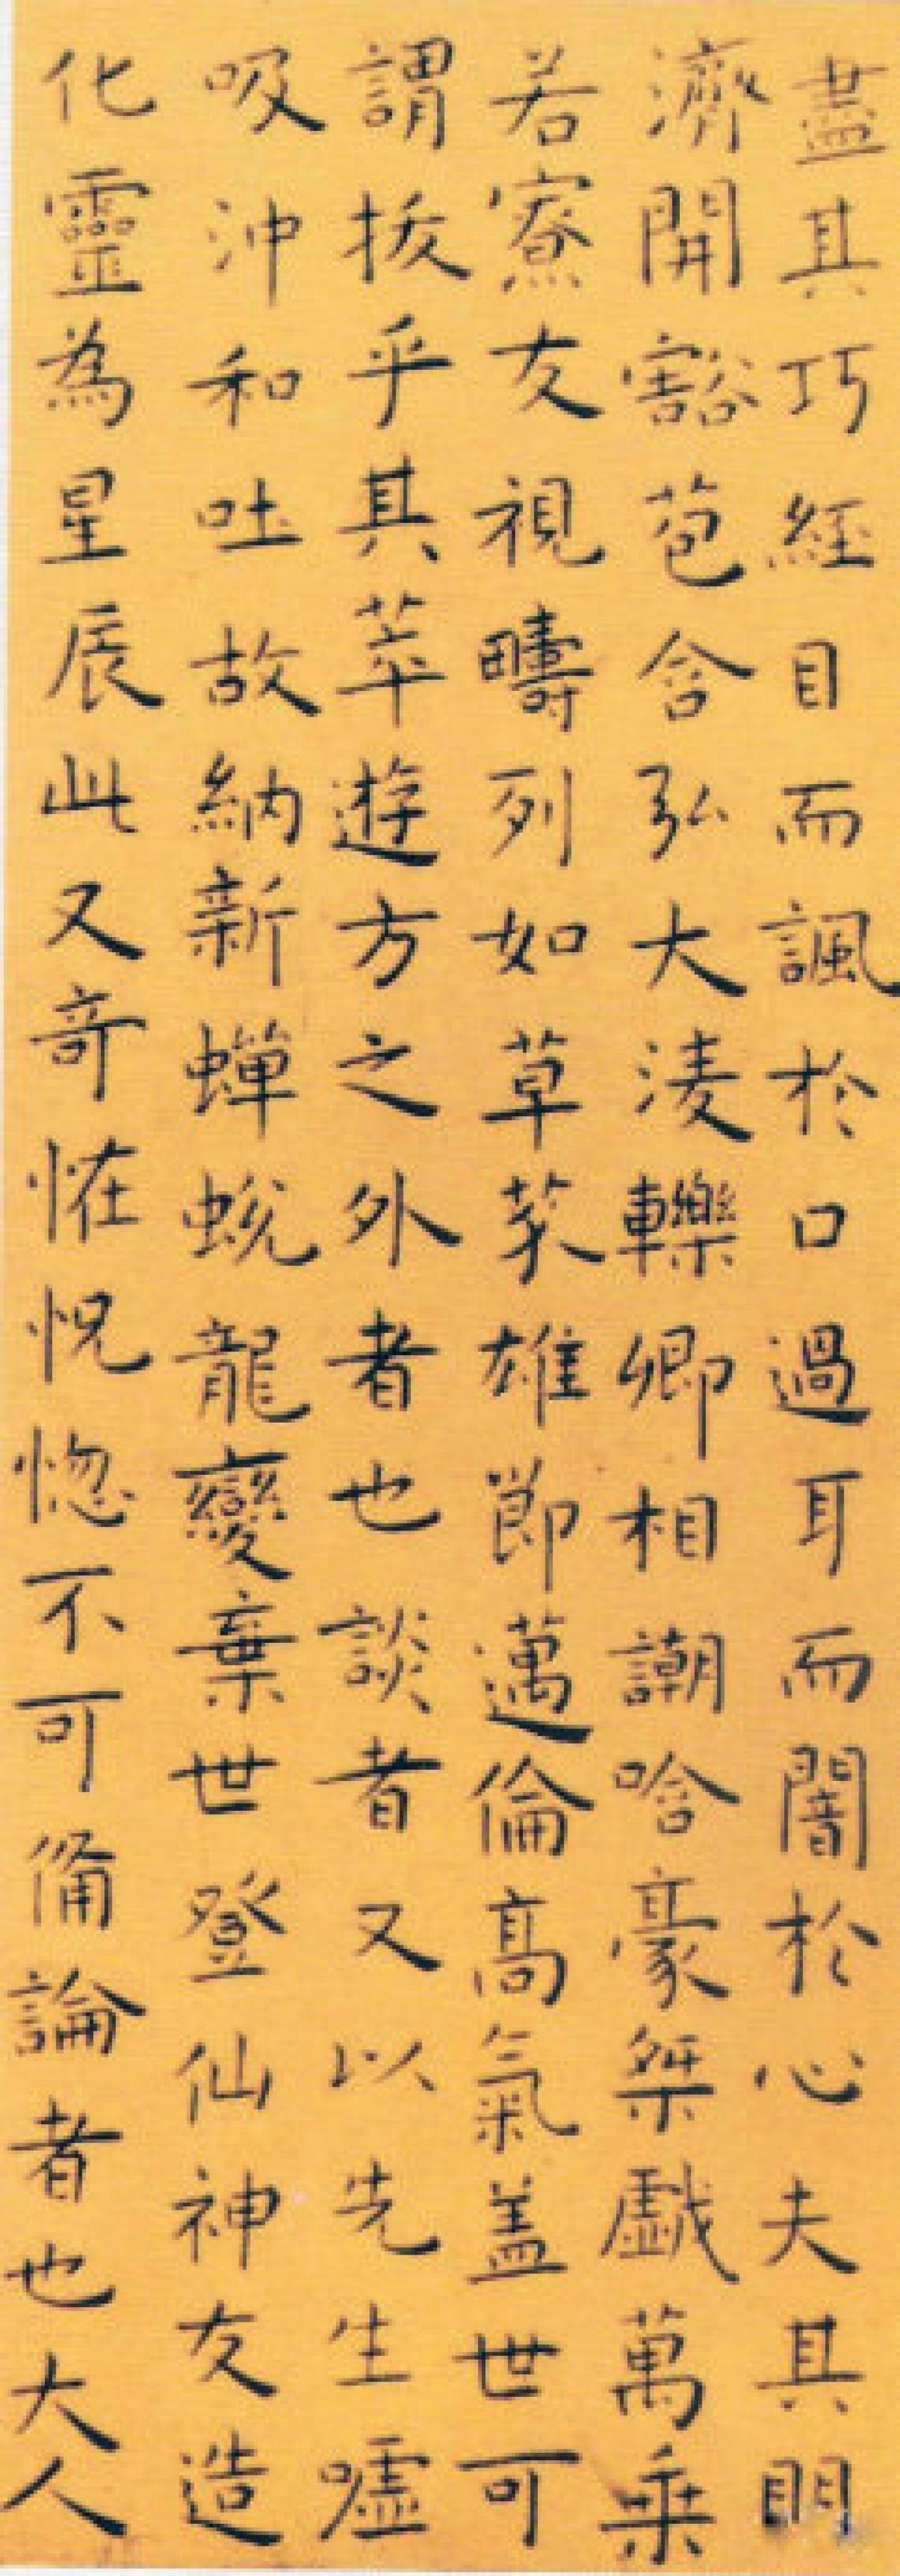 盡其巧經目而諷於口過耳而闇於心夫其明
濟開豁苞含弘大淩轢卿相謿哈豪桀戲萬乘
若寮友視疇列如草芥雄節邁倫髙氣盖世可
謂拔乎其萃遊方之外者也談者又以先生噓
吸沖和吐故納新蟬蛻龍變棄世登仙神友造
化靈為星辰此又奇恠怳惚不可備論者也大人